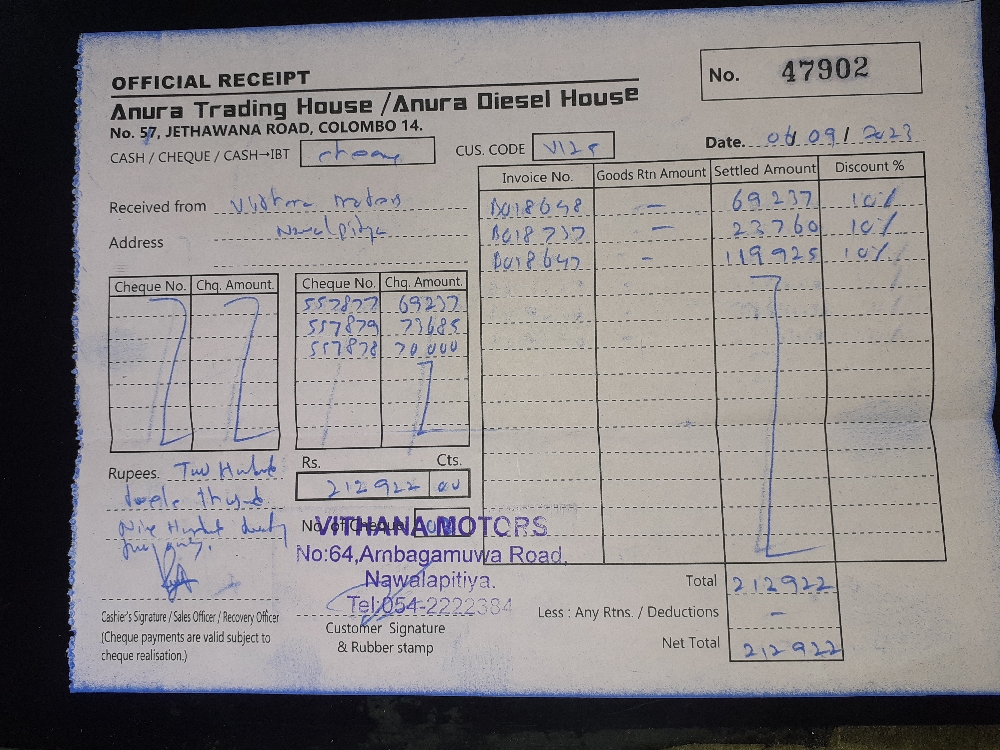 OFFICIAL RECEIPT
No. 47902
Anura Trading House / Anura Diesel House
No. 57, JETHAWANA ROAD, COLOMBO 14.
CASH / CHEQUE / CASH→IBT
CUS. CODE V125
Date. 06/09/2023
Received from Vithana Motors
Address Nawalpitiya
Invoice No. Goods Rtn Amount Settled Amount Discount %
B018648 – 69237 10%
B018737 – 23760 10%
B018647 – 119925 10%
Cheque No. Chq. Amount. Cheque No. Chq. Amount.
557877 69237
557879 73685
557878 70000
Rupees. Two Hundred
twele thousand
Nine Hundred twenty
Rs. Cts.
212922 00
No. of Cheque
VITHANA MOTORS
No:64,Ambagamuwa Road,
Nawalapitiya.
Tel:054-2222384
Total 212922
Less : Any Rtns. / Deductions –
Net Total 212922
Cashier's Signature / Sales Officer / Recovery Officer
(Cheque payments are valid subject to
cheque realisation.)
Customer Signature
& Rubber stamp